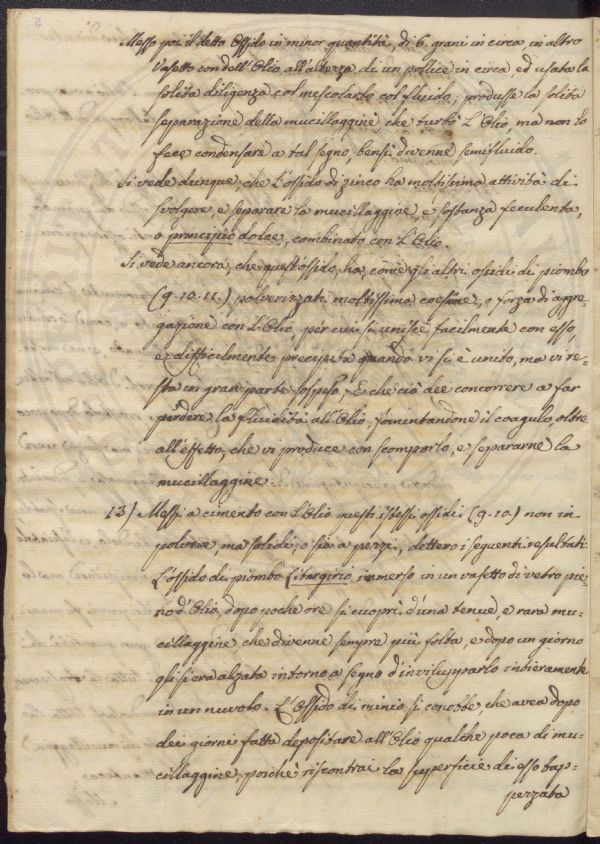 Messo poi il detto Ossido in minor quantità, di 6. grani in circa, in altro
Vasetto con dell'Olio all'altezza di un pollice in circa, ed usata la
solita diligenza col mescolarlo col fluido; produsse la solita
separazione della mucillaggine che turbò l'Olio, ma non lo
fece condensare a tal segno, bensì divenne semifluido.
Si vede dunque, che l'ossido di zinco ha moltissima attività di
svolgere, e separare la mucillaggine, e sostanza feculenta,
o principio dolce, combinato con l'Olio.
Si vede ancora, che quest'ossido, ha, come gli altri ossidi di piombo
(9. 10. 11.) polverizzati moltissima coesione, o forza di aggre-
gazione con l'Olio, per cui si unisce facilmente con esso,
e difficilmente precipita quando vi si è unito, ma vi re-
sta in gran parte sospeso. E che ciò dee concorrere a far
perdere la fluidità all'Olio, fomentandone il coagulo, oltre
all'effetto, che vi produce con scomporlo, e separarne la
mucillaggine.
13) Messi a cimento con l'Olio questi istessi ossidi (9. 10.) non in
polvere, ma solidi, o sia a pezzi, dettero i seguenti resultati
L'ossido di piombo Litargirio, immerso in un vasetto di vetro pie-
no d'Olio, dopo poche ore si cuoprì d'una tenue, e rara mu-
cillaggine che divenne sempre più folta, e dopo un giorno
gli si era alzata intorno a segno d'invilupparlo intieramente
in un nuvolo. L'Ossido di minio si conobbe, che avea dopo
dei giorni fatta depositare all'Olio qualche poca di mu-
cillaggine, poichè riscontrai la superficie di esso tap-
pezzata